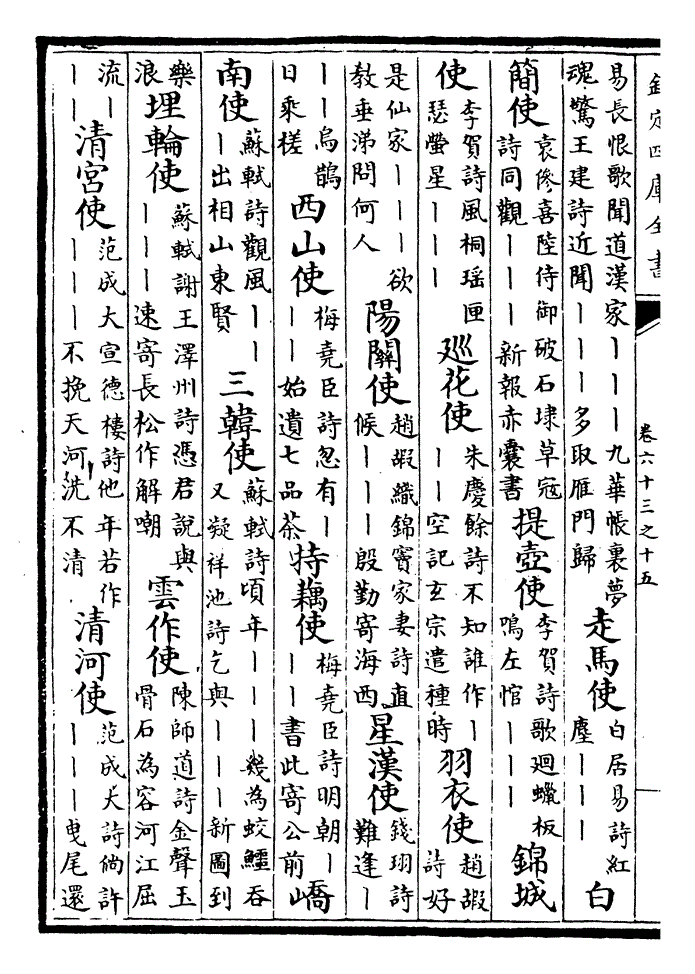 欽定四庫全書 卷六十三之十五
易長恨歌聞道漢家丨丨丨九華帳裏夢魂驚王建詩近聞丨丨丨多取雁門歸 走馬使 白居易詩紅塵丨丨丨 白
簡使 袁傪喜陸侍御破石埭草寇詩同觀丨丨丨新報赤囊書 提壺使 李賀詩歌廻蠟板鳴左悺丨丨丨 錦城
使 李賀詩風桐瑶匣瑟螢星丨丨丨 廵花使 朱慶餘詩不知誰作丨丨丨空記玄宗遣種時 羽衣使 趙嘏詩好
是仙家丨丨丨欲教垂涕問何人 陽關使 趙嘏織錦竇家妻詩直候丨丨丨殷勤寄海西 星漢使 錢珝詩難逢丨
丨丨烏鵲日乘槎 西山使 梅堯臣詩忽有丨丨丨始遺七品茶 持藕使 梅堯臣詩明朝丨丨丨書此寄公前 嶠
南使 蘇軾詩觀風丨丨丨出相山東賢 三韓使 蘇軾詩頃年丨丨丨幾為蛟鱷吞又凝祥池詩乞與丨丨丨新圖到
樂浪 埋輪使 蘇軾謝王澤州詩憑君說與丨丨丨速寄長松作解嘲 雲作使 陳師道詩金聲玉骨石為容河江屈
流丨丨丨 清宮使 范成大宣德樓詩他年若作丨丨丨不挽天河洗不清 清河使 范成大詩倘許丨丨丨曳尾還